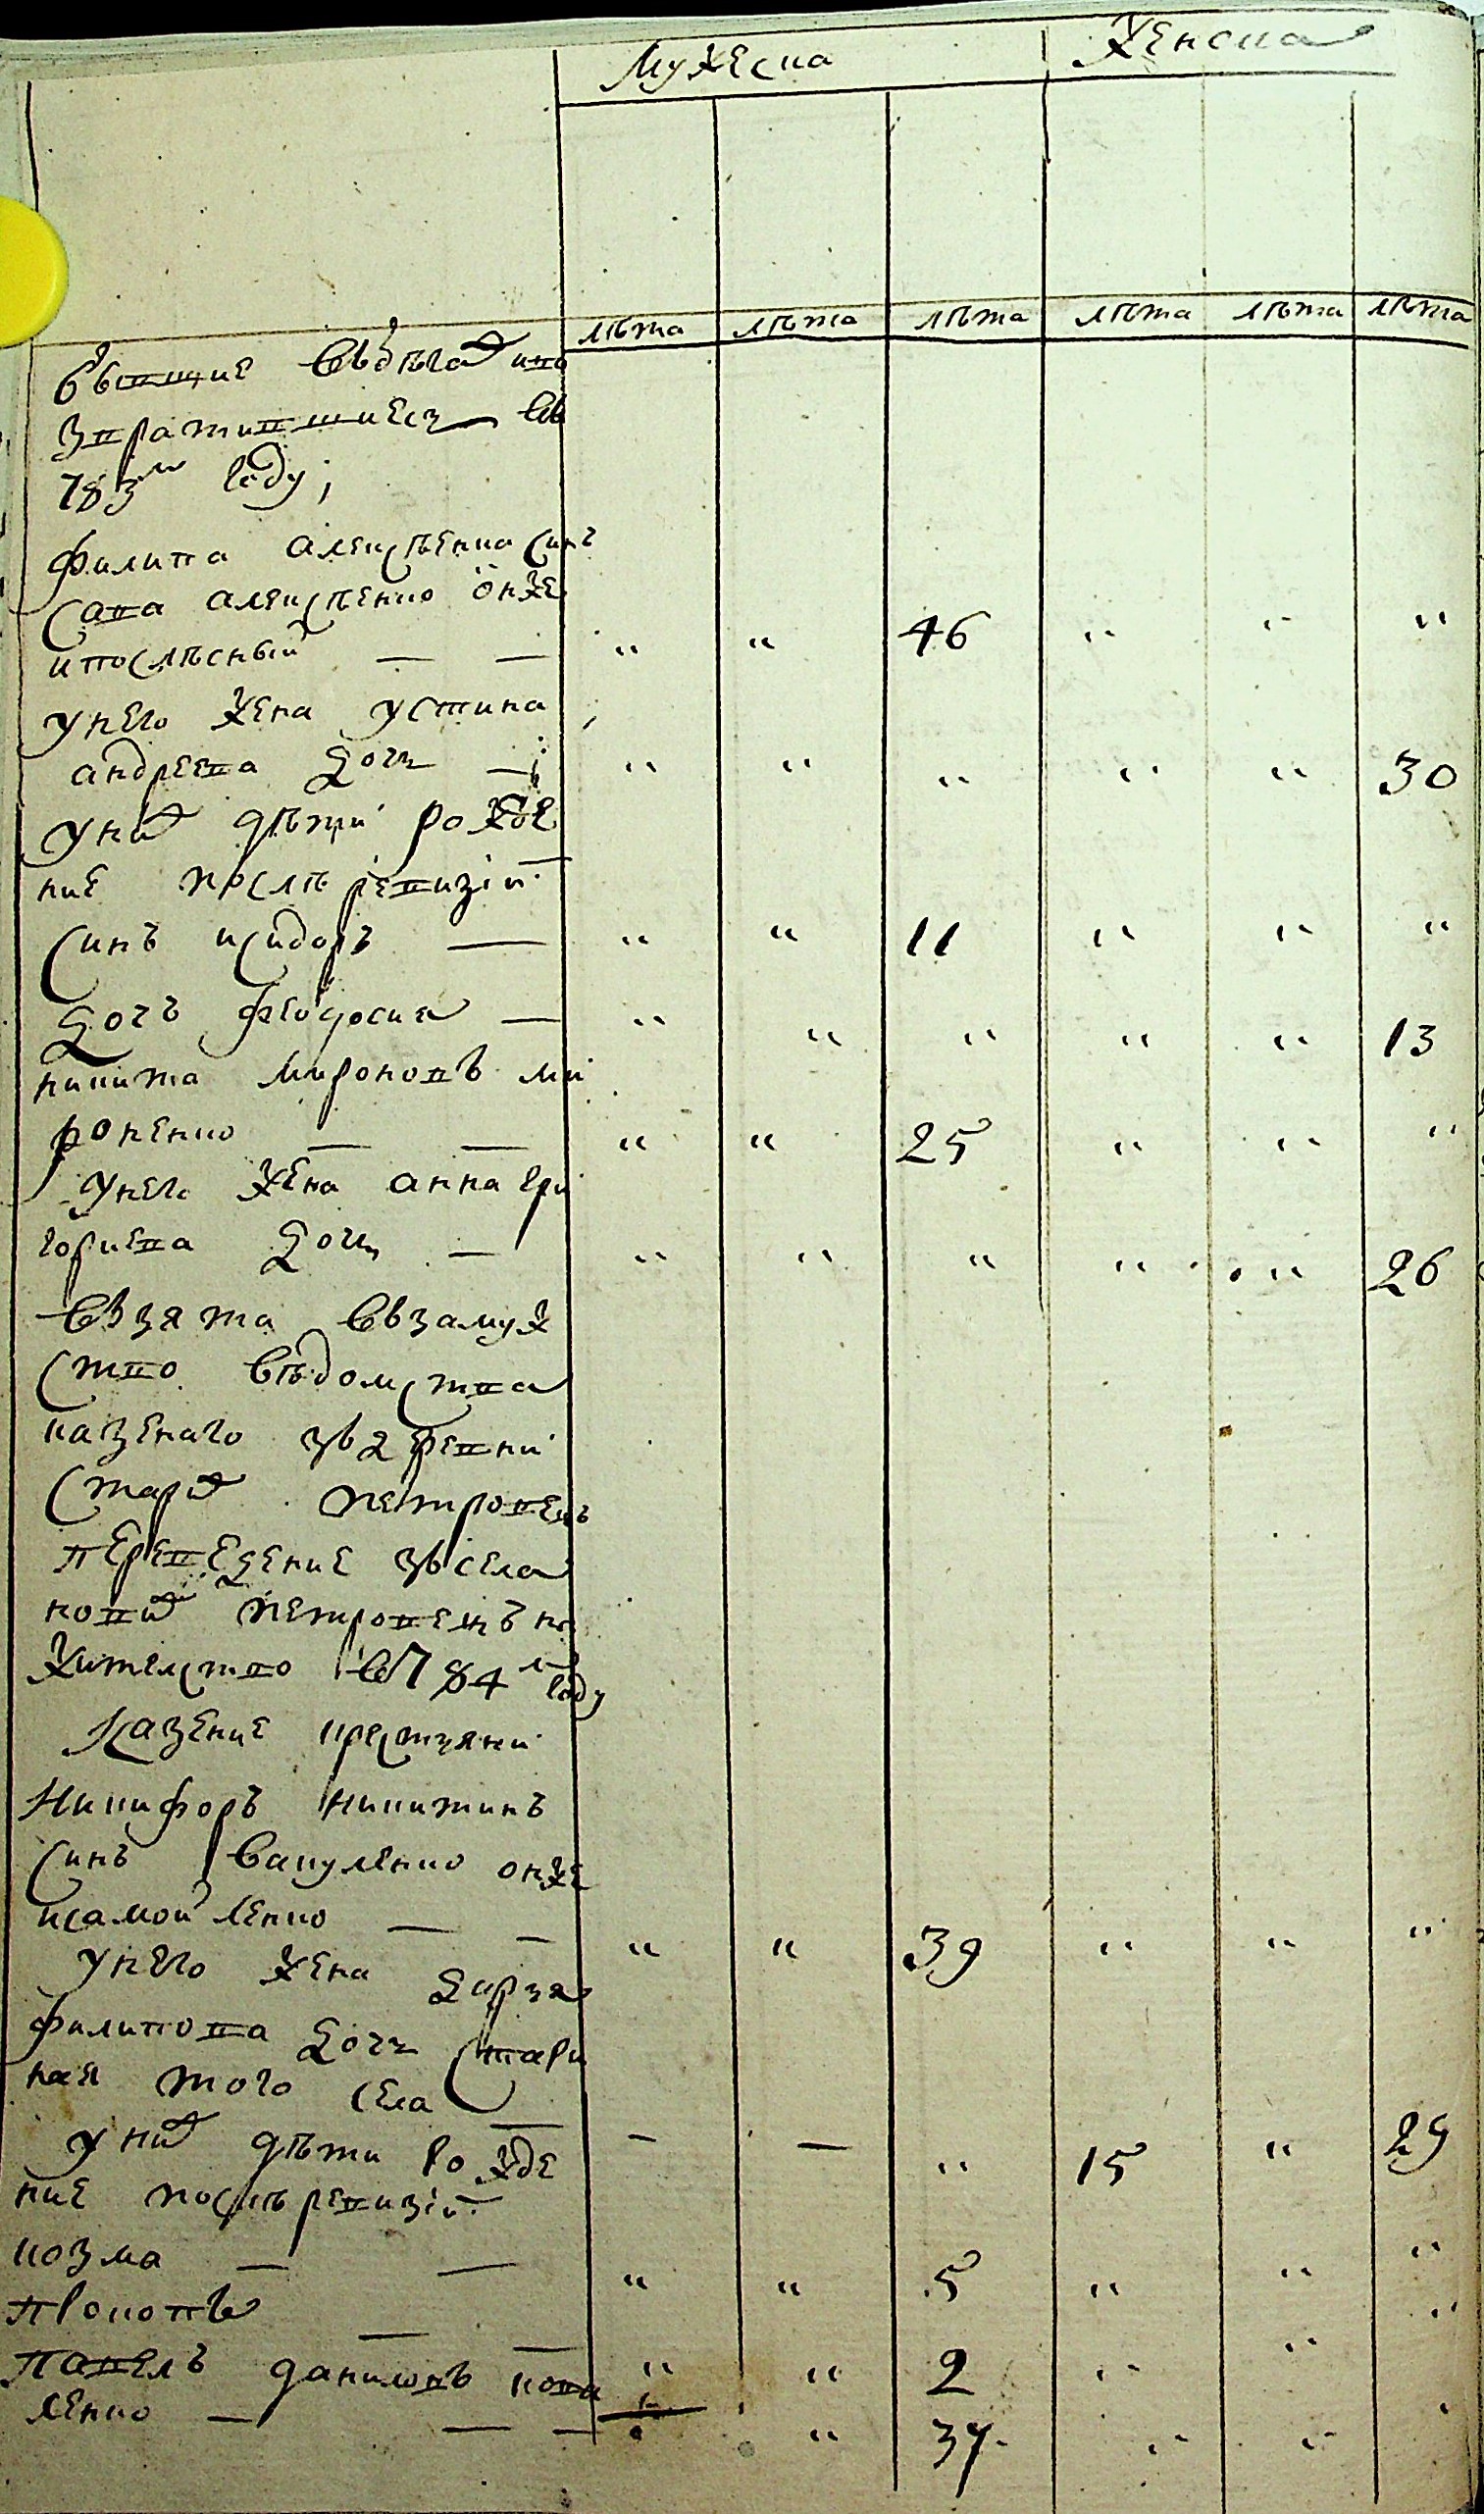 Мужеска Женска
лѣта лѣта лѣта лѣта лѣта лѣта
бывшие въбѣгах ино
звратившиесь въ
783м году;
филипа алексѣенка синъ
Сава алексѣенко онже
ипослѣсный — —
унего жена устина
андреева дочь —
" " 46 " " "
" " " " " 30
уних дѣтъи рожде
ние послѣ ревизіи
Синъ исидоръ — " " 11 " " "
Дочъ феодосиа — " " " " " 13
никита мироновъ ми
роненко — — " " 25 " " "
унего жена анна гри
гориева дочь — " " " " " 26
възята въ замуж
ство вѣдомства
казенаго зъдеревни
Старих петровецъ
переведение зъсела
нових петровецъ на
жителство въ784м году
Казение крестяни
Никифоръ никитинъ
синъ вакуленко онже
исамойленко — — " " 39 " " "
унего жена дарья
филипова дочь стари
ная того села
— — " 15 " 29
уних дѣти рожде
ние послѣ ревизіи
козма — — " " 5 " " "
прокопъ — — " " 2 " " "
павелъ даниловъ кова
ленко — — — " 37 " "